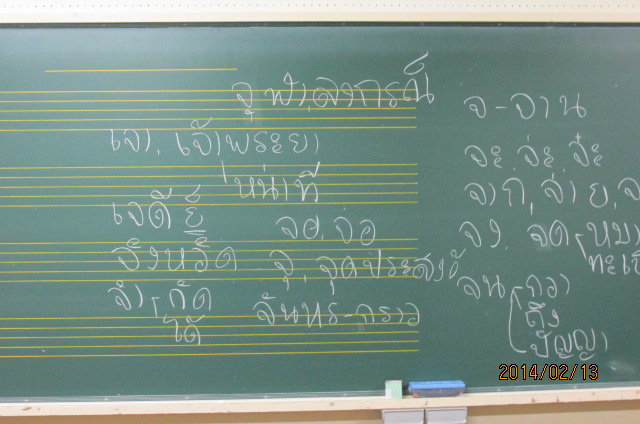 จุฬาลงกรณ์
เจา, เจ้าพระยา
หน่าที
เจดีย์
จังหวัด
จำ กัด
ได้
จอ, จ่อ
จุ, จุดประสงค์
จันทร์-กราว
จ-จาน
จะ จ่ะ จ๊ะ
จาก, จ่าย, จ
จง, จด หมา
จน กวา
ถึง
ปัญญา
2014/02/13